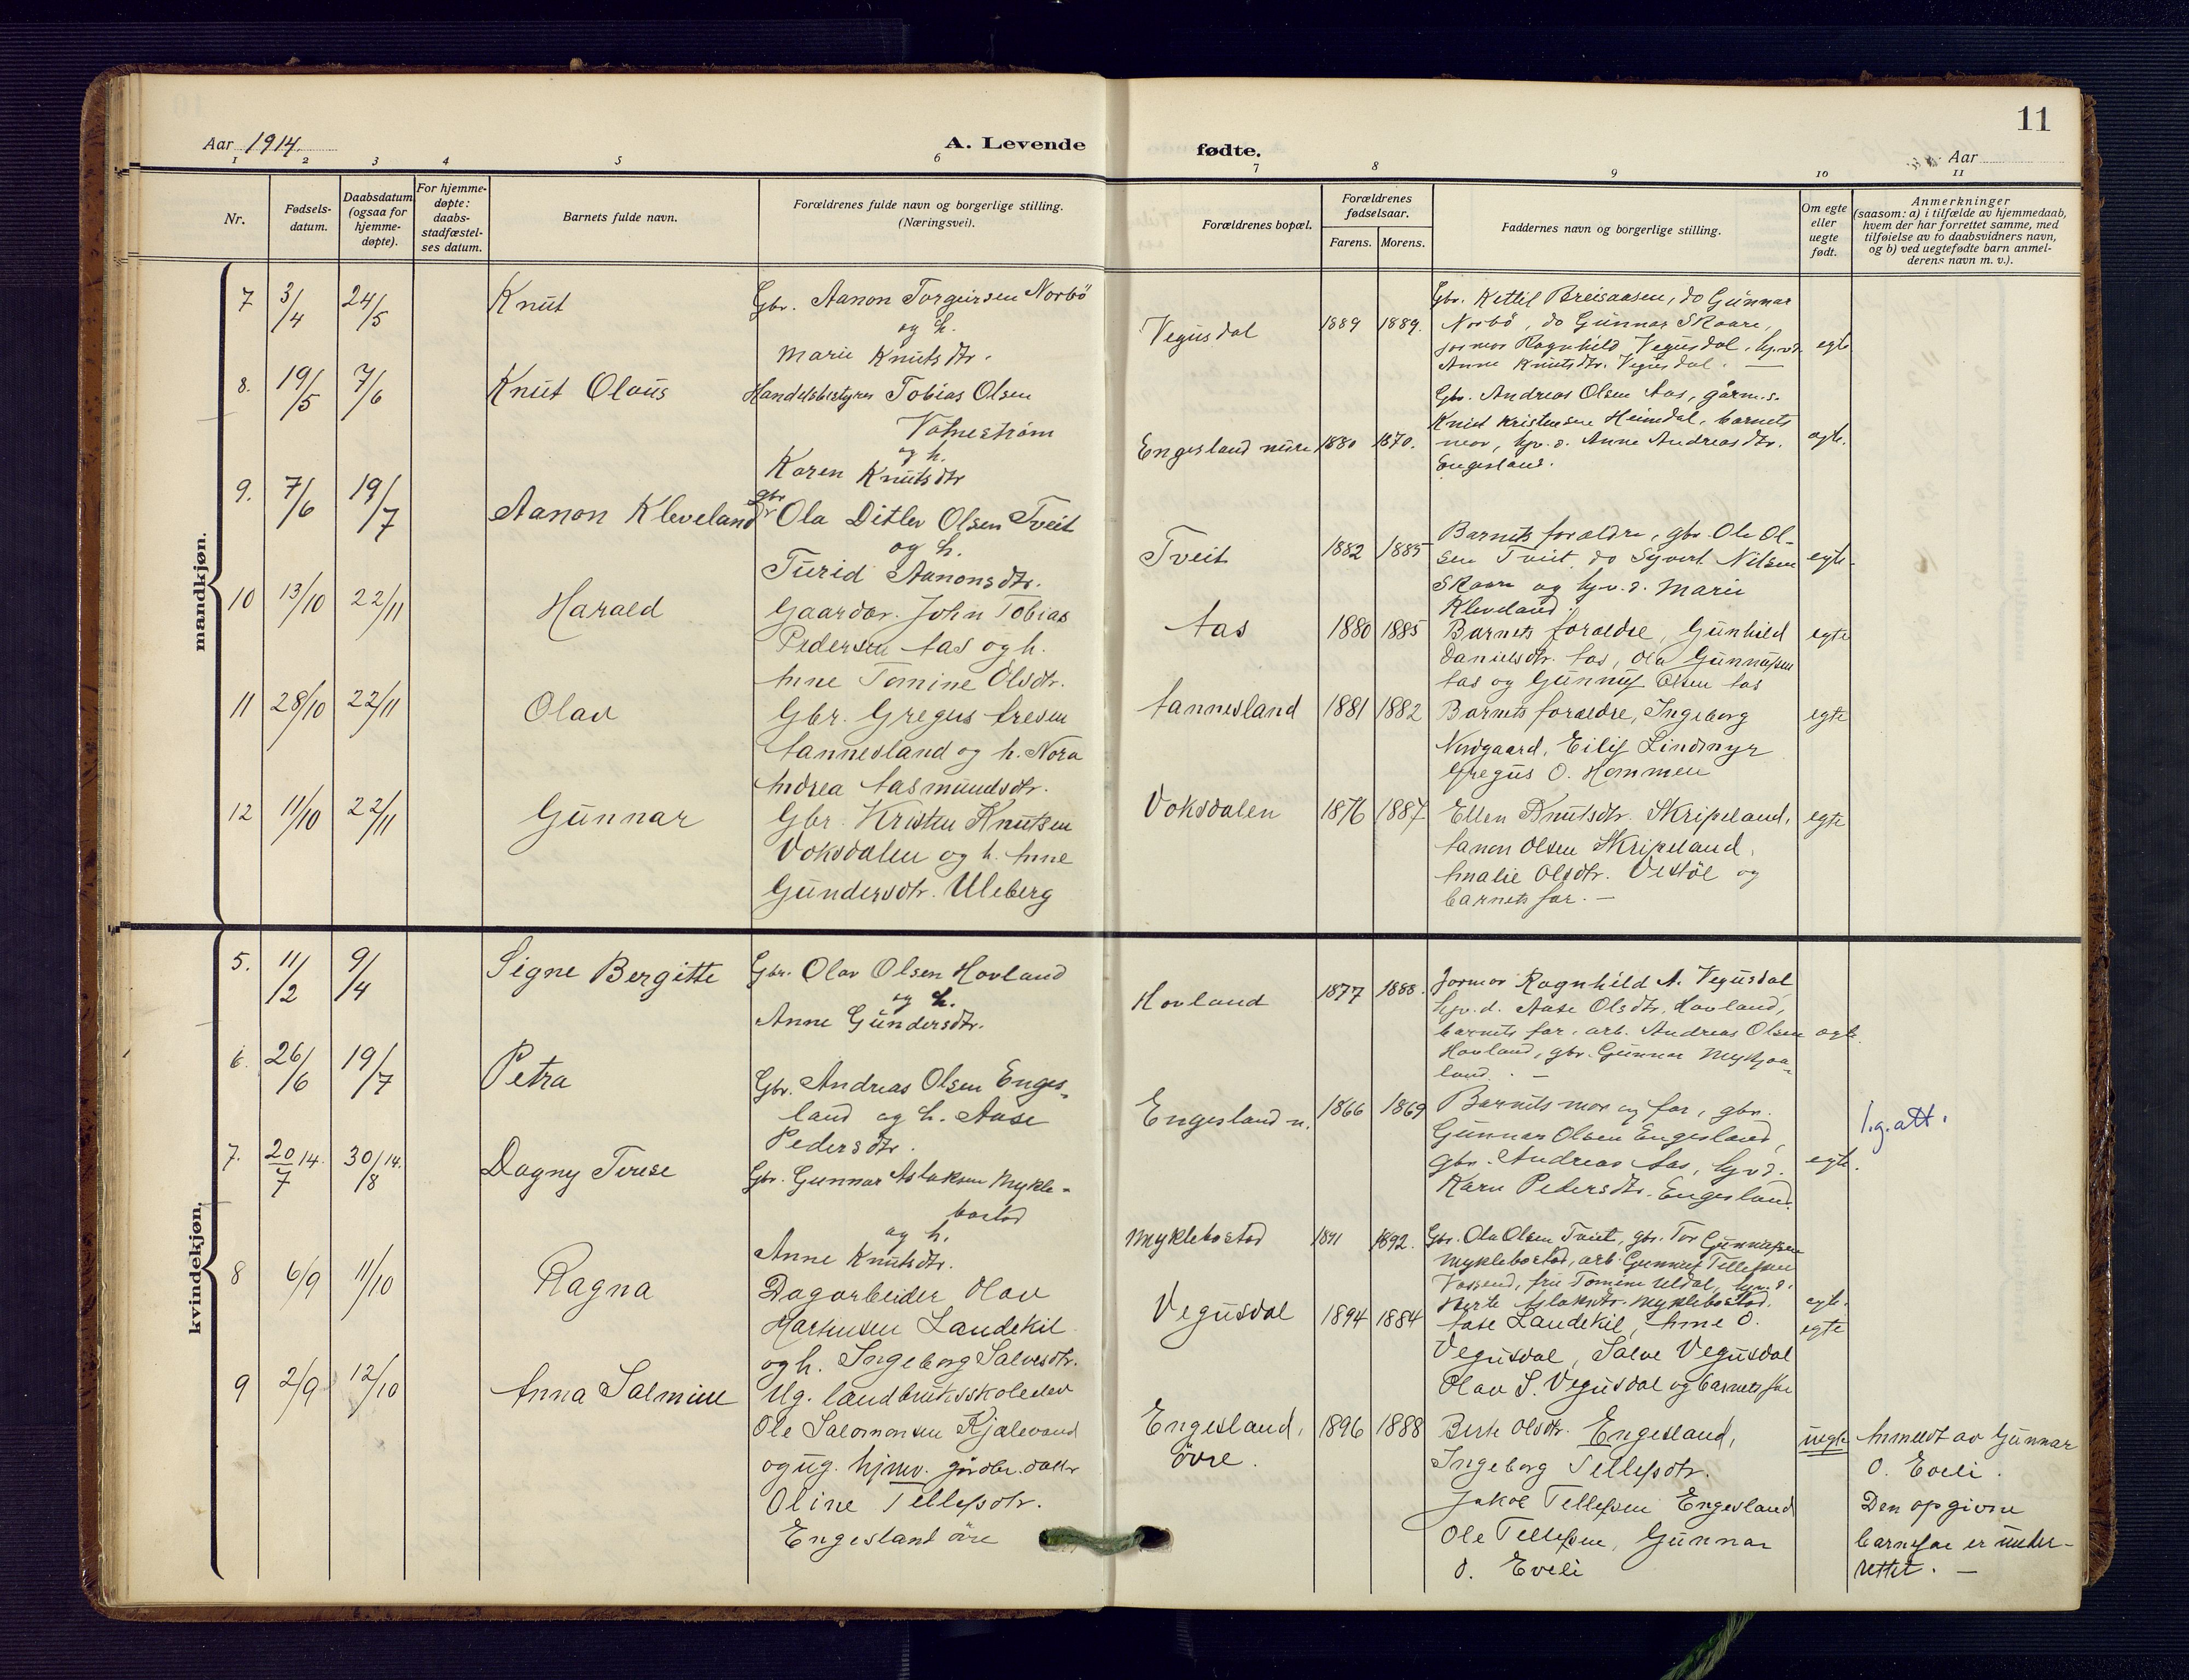 11
Aar 1914.
A. Levende fødte.
Aar
1 2 3 4 5 6 7 8 9 10 11
Nr.
Fødsels-
datum.
Daabsdatum
(ogsaa for
hjemme-
døpte).
For hjemme-
døpte:
daabs-
stadfæstel-
ses datum.
Barnets fulde navn.
Forældrenes fulde navn og borgerlige stilling.
(Næringsvei).
Forældrenes bopæl.
Forældrenes
fødselsaar.
Farens. Morens.
Faddernes navn og borgerlige stilling.
Om egte
eller
uegte
født.
Anmerkninger
(saasom: a) i tilfælde av hjemmedaab,
hvem der har forrettet samme, med
tilføielse av to daabsvidners navn,
og b) ved uegtefødte barn anmel-
derens navn m. v.).
mandkjøn.
7 3/4 24/5 Knut
Gbr. Aanon Torgeirsen Norbö
og h.
Marie Knutsdtr.
Vegusdal 1889 1889.
Gbr. Kettil Breisaasen, do Gunnar
Norbö, do Gunnar Skaare,
formor Ragnhild Vegusdal, hjv.d.
Anne Knutsdtr. Vegusdal. —
egte
8. 19/5 7/6 Knut Olaus
Handelsbestyrer Tobias Olsen
Vatnestrøm
og h.
Karen Knutsdtr
Engesland nure 1880 1870.
Gbr. Andreas Olsen Aas, gårm.s.
Knut Kristensen Heimdal, barnets
mor, hjv. d. Anne Andreasdtr.
Engesland.
ægte.
9. 7/6 19/7 Aanon Kleveland
gbr Ola Ditlev Olsen Tveit
og h.
Turid Aanonsdtr.
Tveit 1882 1885
Barnets forældre, gbr. Ole Ol-
sen Tveit, do Syvert Nilsen
Skaare og hjv. d. Marie
Kleveland.
egte.
10 13/10 22/11 Harald
Gaardbr. John Tobias
Pedersen Aas og h.
Anne Tomine Olsdtr.
Aas 1880 1885
Barnets foraeldre, Gunhild
Danielsdtr. Aas, Ola Gunnufsen
Aas og Gunnuf Olsen Aas
egte
11 28/10 22/11 Olav
Gbr. Gregus Aresen
Aannesland og h. Nora
Andrea Aasmundsdtr.
Aannesland 1881 1882
Barnets foraeldre, Ingeborg
Nordgaard, Eilif Lindmyr
Gregus O. Hommen
egte
12 11/10 22/11 Gunnar
Gbr. Kristen Knutsen
Voksdalen og h. Anne
Gundersdtr. Uleberg
Voksdalen 1876 1887
Ellen Knutsdtr. Skripeland,
Aanon Olsen Skripeland,
Amalie Olsdtr. Vestöl og
barnets far. —
egte
kvindekjøn.
5. 11/2 9/4 Signe Bergitte
Gbr. Olav Olsen Hovland
og h.
Anne Gundersdtr.
Hovland 1877 1888.
Formor Ragnhild A. Vegusdal,
hjv. d. Aase Olsdtr. Hovland,
barnets far, arb. Andreas Olsen
Hovland, gbr. Gunnar Mykjaa-
land. —
ægte
6. 26/6 19/7 Petra
Gbr. Andreas Olsen Enges-
land og h. Aase
Pedersdtr.
Engesland n. 1866 1869
Barnets mor og far, gbr.
Gunnar Olsen Engesland,
gbr. Andreas Aas, hjv d.
Karn Pedersdtr. Engesland.
egte.
1.g.att.
7. 20/7 14. 30/8 14. Dagny Terese
Gbr. Gunnar Aslaksen Mykle-
bostad
og h.
Anne Knutsdtr.
Myklebostad 1891 1892.
Gbr. Ola Olsen Tveit, gbr. Tor Gunnufsen
Myklebostad, arb. Gunnuf Tellefsen
Vassend, frü Tomine Uldal, hjv. d.
Berte Aslaksdtr. Myklebostad.
egte.
8 6/9 11/10 Ragna
Dagarbeider Olav
Martinsen Landekil
og h. Ingeborg Salvesdtr.
Vegusdal 1894 1884
Aase Landekil, Anne O.
Vegusdal, Salve Vegusdal
Olav S. Vegusdal og barnets far
egte
9 2/9 12/10 Anna Salmine
Ug. landbruksskoleelev
Ole Salomonsen Kjælevand
og ug. hjmv. gårdbr. datter
Oline Tellefsdtr.
Engesland øvre
Engesland,
övre.
1896 1888
Berte Olsdtr. Engesland,
Ingeborg Tellefsdtr.
Jakob Tellefsen Engesland
Ole Tellefsen, Gunnar
O. Eveli
uegte
Anmeldt av Gunnar
O. Eveli.
Den opgivne
barnefar er under-
rettet. —